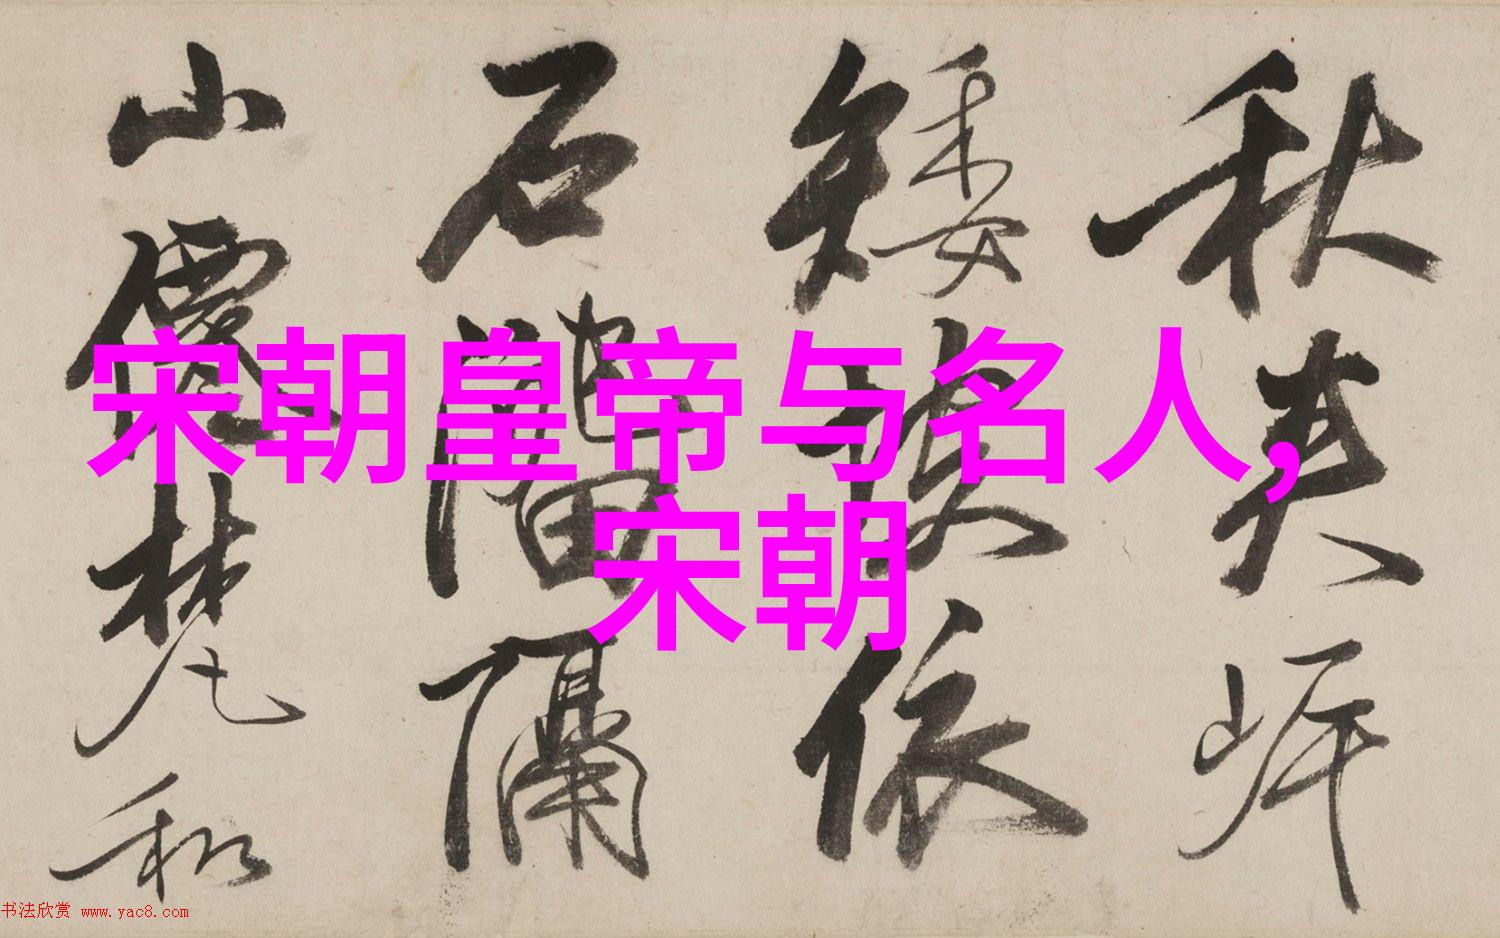 宋朝皇帝与名人,
宋朝
秋美岸
矮
依
石
隔
山僊梵和
书法欣赏 www.yac8.com